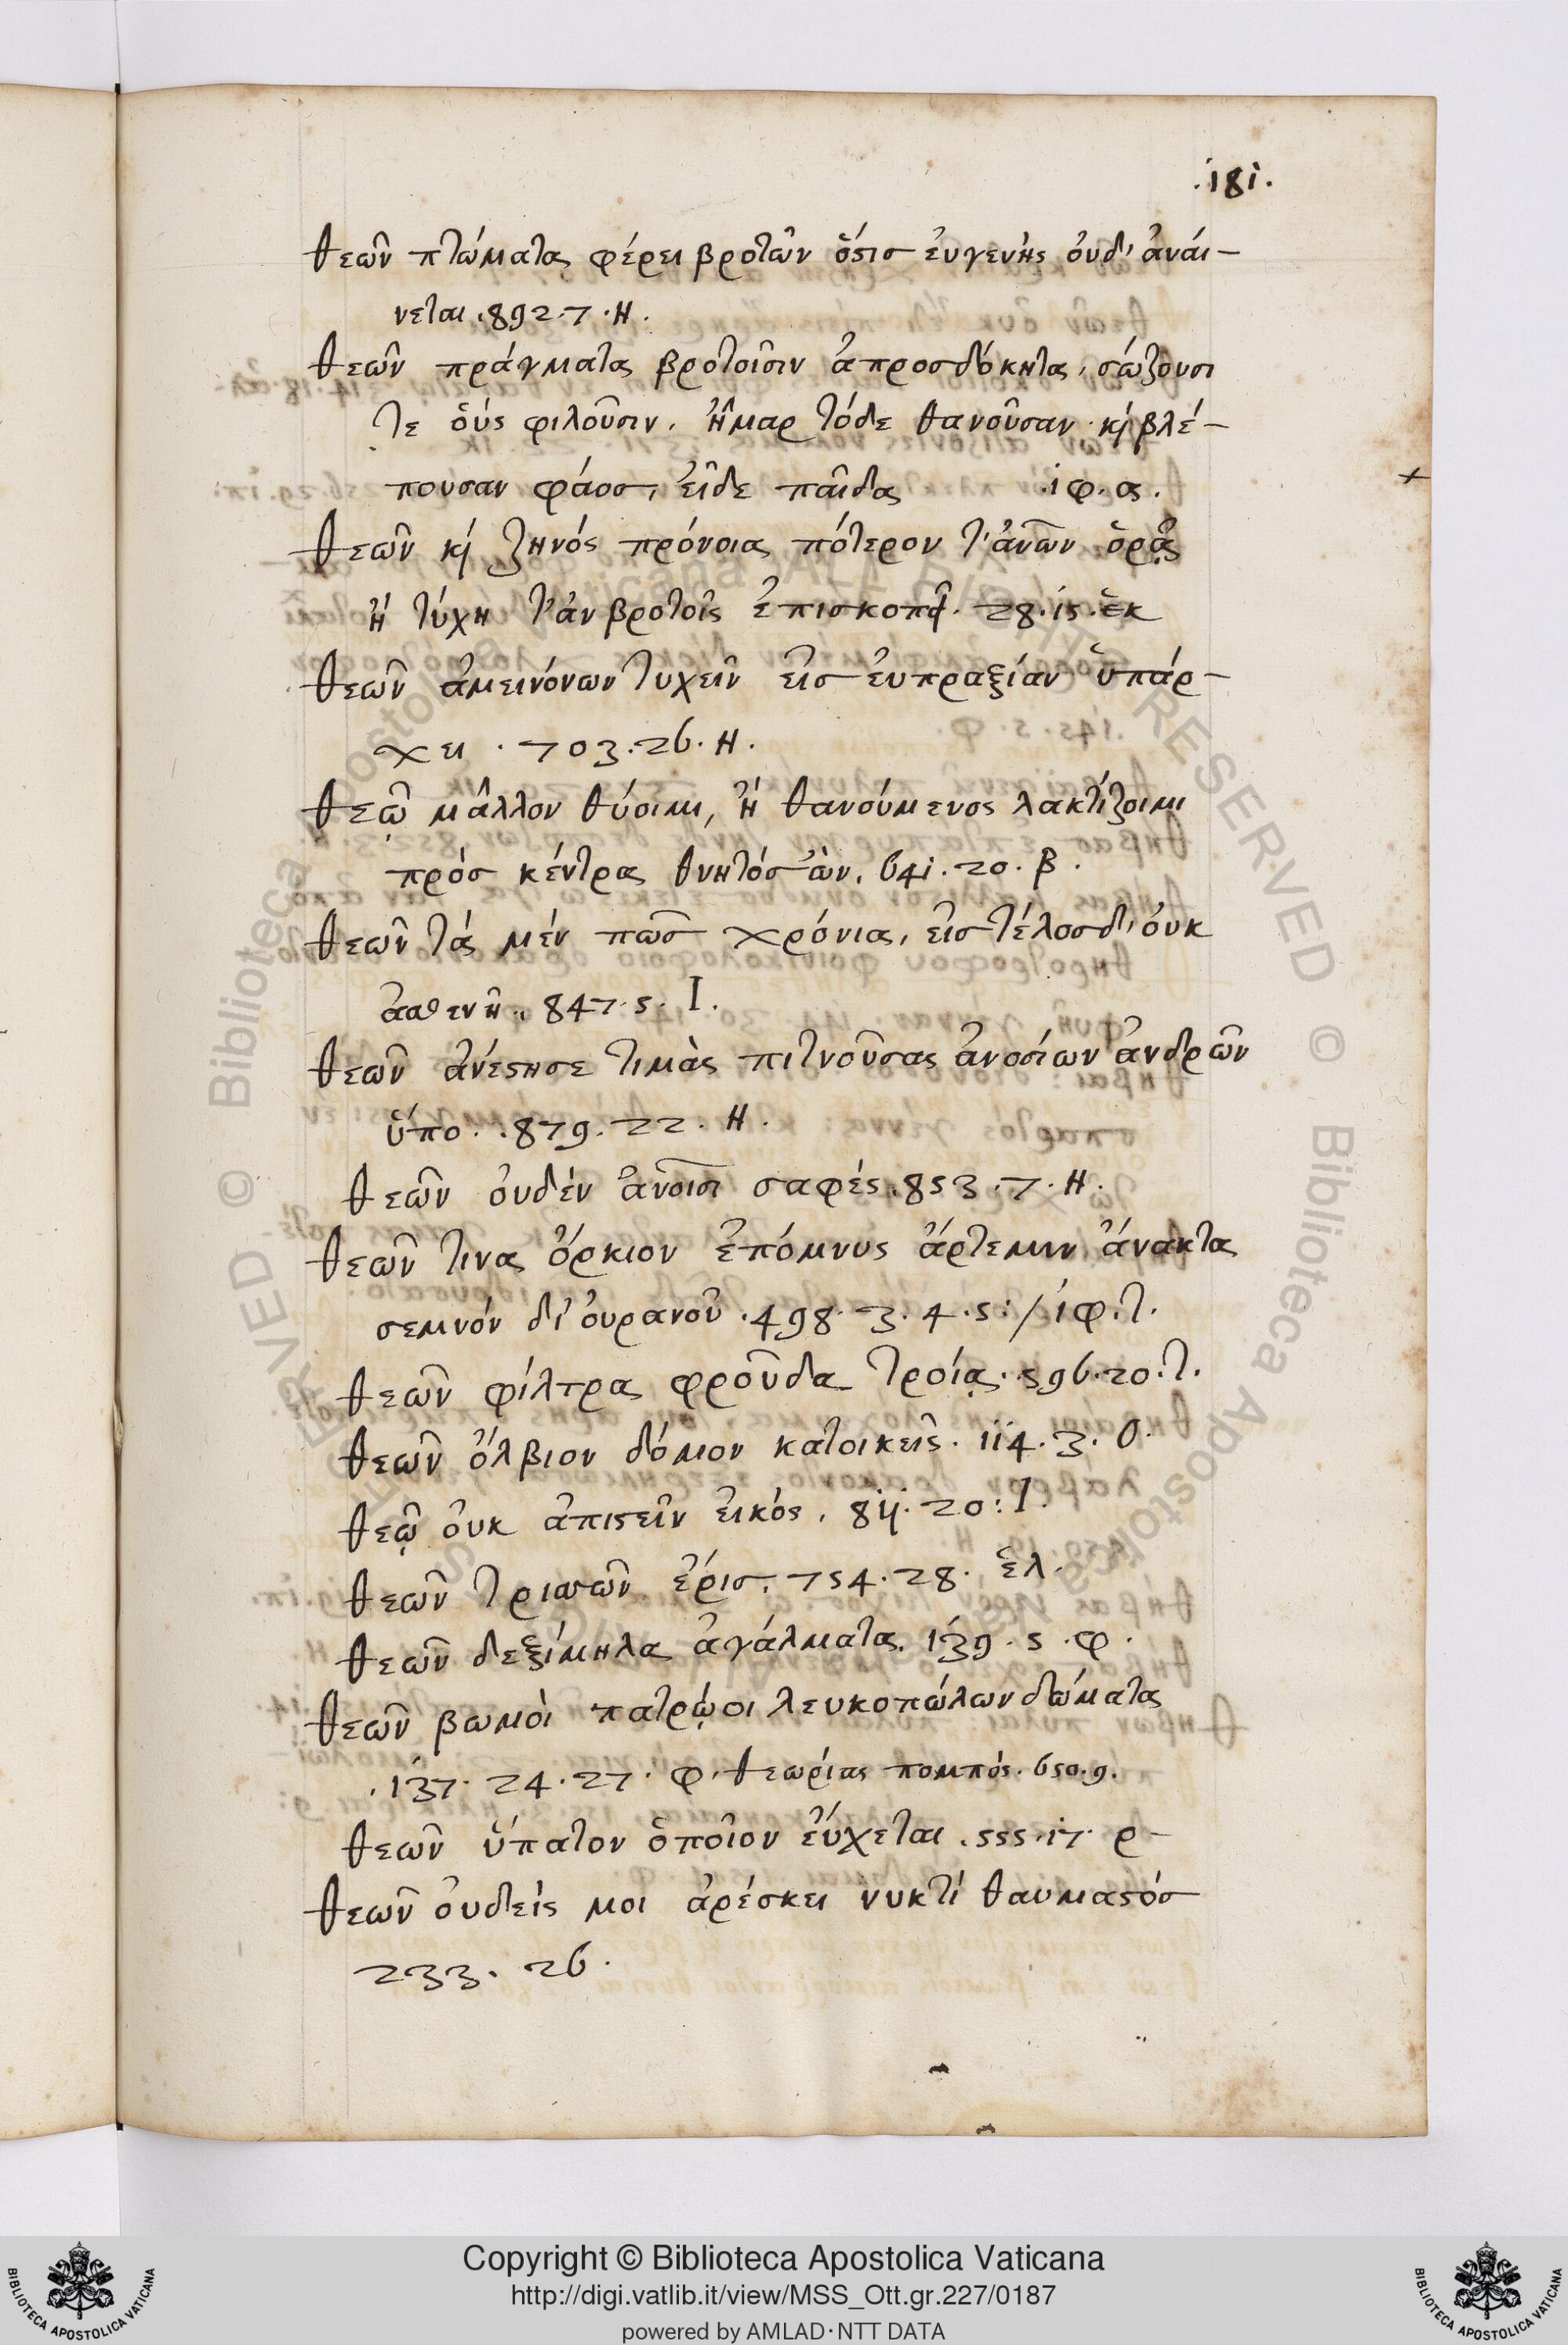 .181.
θεῶν πτώματα φέρει βροτῶν ὅστισ ἐυγενὴς ὀυδ' ἀνάι-
νεται. 892. 7. Η.
θεῶν πράγματα βροτοῖσιν ἀπροσδόκητα, σώζουσι
τε ὁύς φιλοῦσιν. ἦμαρ τόδε θανοῦσαν κὶ βλέ-
πουσαν φάοσ, εἶδε παῖδα .ιφ. α.
θεῶν κὶ ζηνός πρόνοια πότερον τ' ἀνῶν ὁρᾷς
ἤ τύχη τ' ἀν βροτοῖς ἐπισκοπεῖ. 28. 15. ἑκ
θεῶν ἀμεινόνων τυχεῖν εἰσ ἐυπραξίαν ὑπάρ-
χει . 703. 26. Η.
θεῷ μᾶλλον θύοιμι, ἤ θανούμενος λακτίζοιμι
πρόσ κέντρα θνητόσ ὤν. 641. 20. β.
θεῶν τά μέν πωσ χρόνια, εἰσ τέλοσ δ' ὀυκ
ἀσθενῆ. 847. 5. Ι.
θεῶν ἀνέστησε τιμὰς πιτνοῦσας ἀνοσίων ἀνδρῶν
ὕπο. .879. 22. Η.
θεῶν ὀυδέν ἀνοισι σαφές. 853. 7. Η.
θεῶν τινα ὅρκιον ἐπόμνυς ἄρτεμιν ἄνακτα
σεμνόν δι' ὀυρανοῦ .498. 3. 4. 5: / ιφ. τ.
θεῶν φίλτρα φροῦδα τροίᾳ. 596. 20. τ.
θεῶν ὄλβιον δόμον κατοικεῖς. 114. 3. Ο.
θεῷ ὀυκ ἀπιστεῖν εἰκός. 811. 20: Ι.
θεῶν τρισσῶν ἔρισ. 754. 28. ἑλ.
θεῶν δεξίμηλα ἀγάλματα. 139. 5. φ.
θεῶν βωμοὶ πατρῷοι λευκοπώλων δώματα
.137. 24. 27. φ. θεωρίας πομπός. 650. 9.
θεῶν ὕπατον ὁποῖον ἐύχεται. 555. 17. ρ-
θεῶν ὀυδείς μοι ἀρέσκει νυκτί θαυμαστόσ
233. 26.
Copyright © Biblioteca Apostolica Vaticana
http://digi.vatlib.it/view/MSS_Ott.gr.227/0187
powered by AMLAD·NTT DATA